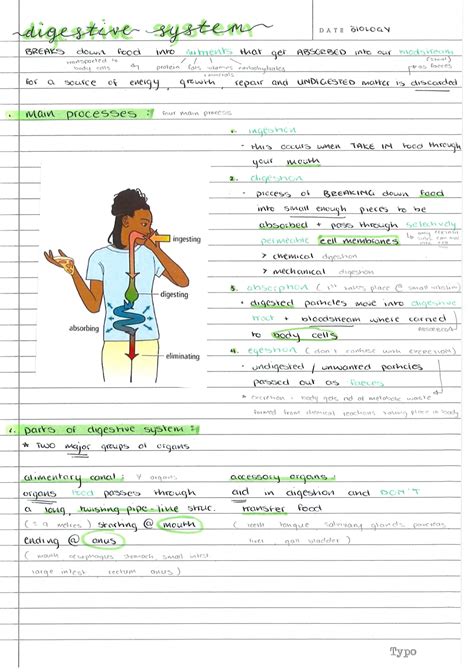 digestive system
DATE BIOLOGY
BREAKS down food into nutrients that get ABSORBED into our bloodstream
transported to body cells
protein fats vitamins carbohydrates
minerals
as faeces
for a source of energy, growth, repair and UNDIGESTED matter is discarded
main processes: four main process
1. ingestion
this occurs when TAKE IN food through
your mouth
2. digestion
process of BREAKING down food
into small enough pieces to be
absorbed + pass through selectively
permeable cell membranes
> chemical digestion
> mechanical digestion
3. absorption (takes place @ small intestine)
digested particles move into digestive
tract + bloodstream where carried
to body cells
4. egestion (don't confuse with excretion)
undigested / unwanted particles
passed out as faeces
* excretion - body gets rid of metabolic waste
formed from chemical reactions taking place in body
ingesting
digesting
absorbing
eliminating
parts of digestive system:
* TWO major groups of organs
alimentary canal: organs
organs food passes through
a long, twisting pipe-like struc.
(± 9 metres) starting @ mouth
ending @ anus
(mouth oesophagus stomach small intest
large intest rectum anus)
accessory organs:
aid in digestion and DON'T
transfer food
(teeth tongue salivary glands pancreas
liver gall bladder)
Typo